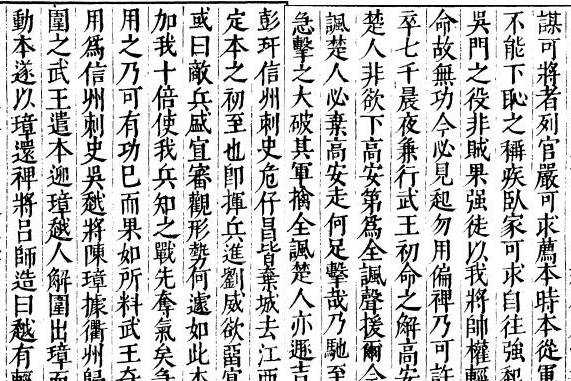 謀可將者列官嚴可求薦本時本從軍
不能下恥之稱疾臥家可求自往強起
吳門之役非賊果强徒以我將帥權輕
命故無功今必見起勿用偏裨乃可許
卒七千晨夜兼行武王初命之解高安
楚人非欲下高安第爲全諷聲援爾今
諷楚人必棄高安走何足擊哉乃馳至
急擊之大破其軍擒全諷楚人亦遯吉
彭玕信州刺史危仔昌皆棄城去江西
定本之初至也即揮兵進劉威欲畱宴
或曰敵兵盛宜審觀形勢何遽如此本
加我十倍使我兵知之戰先奪氣矣急
用之乃可有功已而果如所料武王奇
用爲信州刺史吳越將陳璋據衢州歸
圍之武王遣本迎璋越人解圍出璋而
動本遂以璋還裨將呂師造曰越有輕